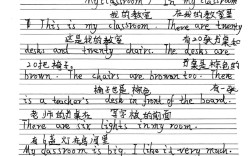 my classroom) In my classroom
我的教室 在我的教室里
This is my classroom. There are twenty
这是我的教室 有20张书桌和
desks and twenty chairs. The desks are
20把椅子, 书桌是棕色的
brown. The chairs are brown too. There
椅子也是棕色 有一张
is a teacher's desk in front of the board.
老师的书桌在 写字板的前面
There are six lights in my room.
有6盏灯在房间里
My classroom is big. I like it very much.